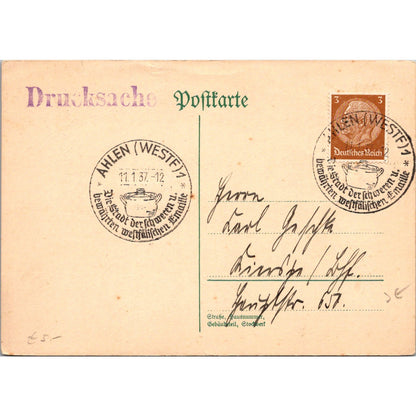 Drucksache Postkarte
3 3
Deutsches Reich
AHLEN (WESTF) 1
11.1.37.-12
Die Stadt der schweren u.
bewährten westfälischen Emaille
AHLEN (WESTF) 1
Die Stadt der schweren u.
bewährten westfälischen Emaille
Herrn
Karl
Hauptstr.
Straße, Hausnummer,
Gebäudeteil, Stockwerk
€ 5.-
3€